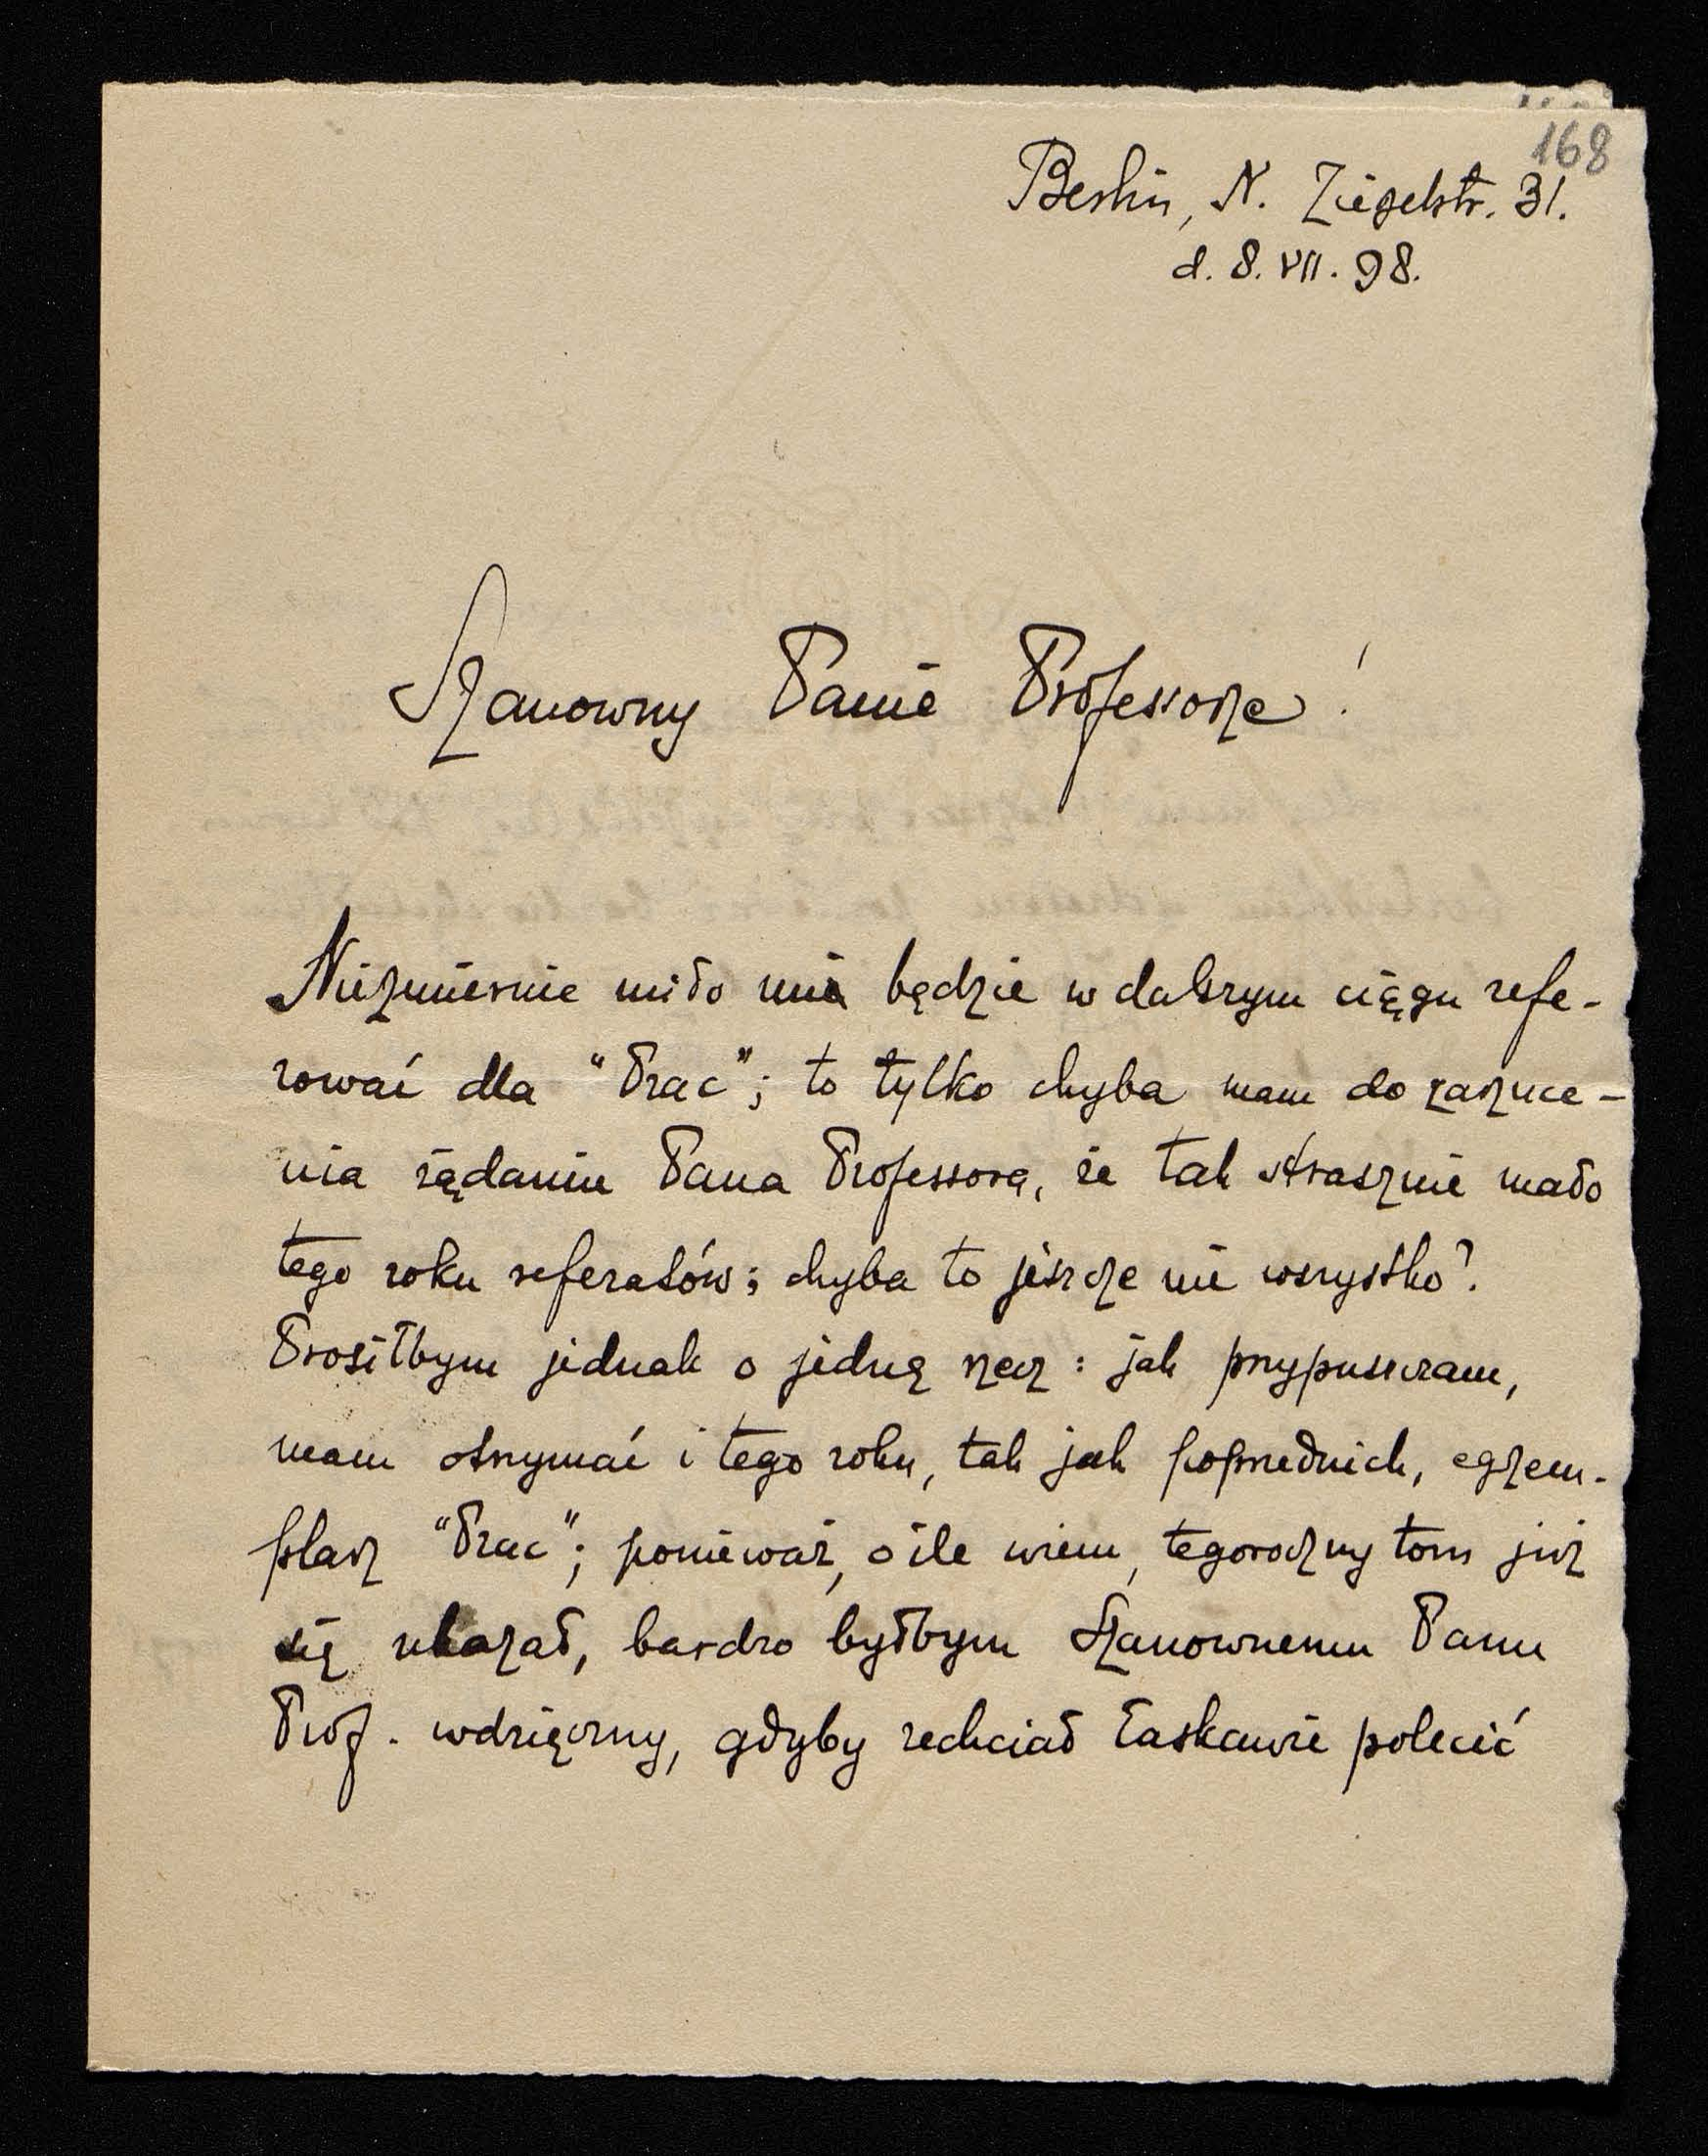 168
Berlin, N. Ziegelstr. 31.
d. 8. VII. 98.
Szanowny Panie Professorze!
Niezmiernie miło mnie będzie w dalszym ciągu refe-
rować dla "Prac"; to tylko chyba mam do zarzuce-
nia żądaniu Pana Professora, że tak strasznie mało
tego roku referatów; chyba to jeszcze nie wszystko?
Prosiłbym jednak o jedną rzecz: jak przypuszczam,
mam otrzymać i tego roku, tak jak poprzednich, egzem-
plarz "Prac"; ponieważ, o ile wiem, tegoroczny tom już
się ukazał, bardzo byłbym Szanownemu Panu
Prof. wdzięczny, gdyby zechciał łaskawie polecić